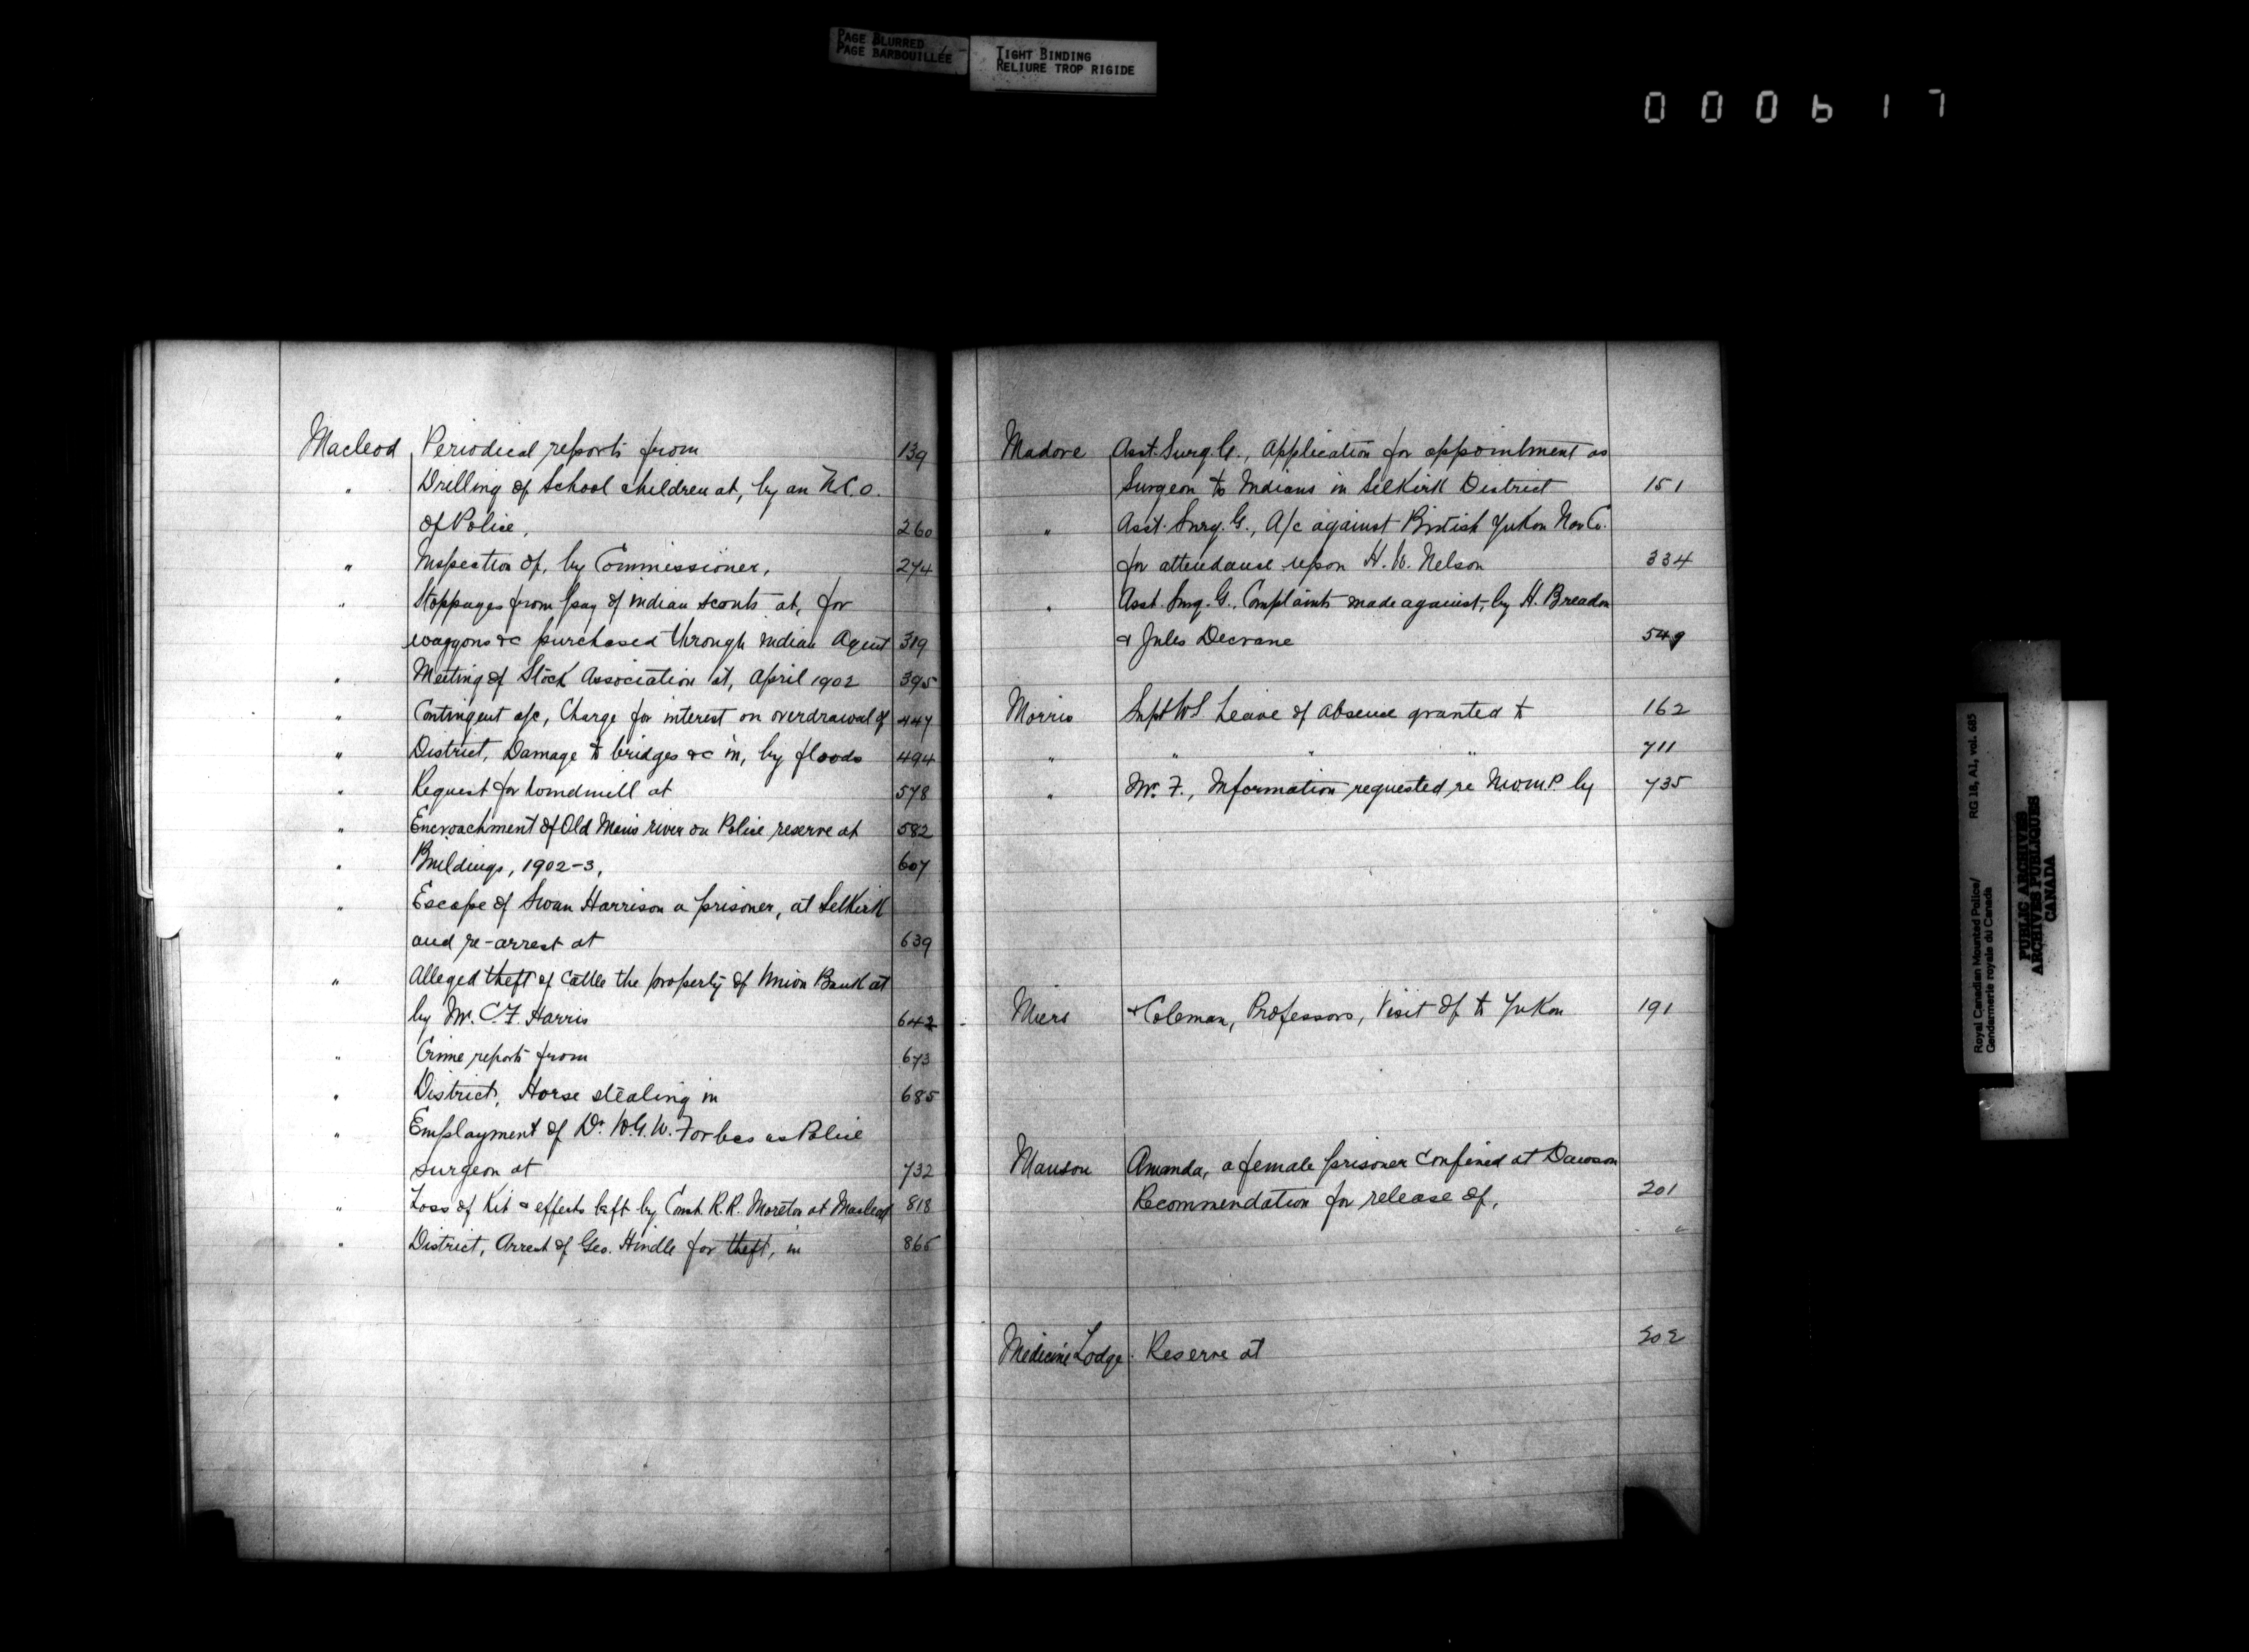 PAGE BLURRED
PAGE BARBOUILLÉE
TIGHT BINDING
RELIURE TROP RIGIDE
000617
Macleod Periodical reports from 139
" Drilling of School children at, by an N.C.O.
of Police, 260
" Inspection of, by Commissioner, 274
" Stoppages from pay of indian scouts at, for
waggons &c purchased through indian Agent 319
" Meeting of Stock Association at, April 1902 395
" Contingent a/c, Charge for interest on overdrawal of 447
" District, Damage to bridges &c in, by floods 494
" Request for windmill at 578
" Encroachment of Old Man's river on Police reserve at 582
" Buildings, 1902-3, 607
" Escape of Swan Harrison a prisoner, at Selkirk
and re-arrest at 639
" Alleged theft of cattle the property of Union Bank at
by Mr. C.F. Harris 642
" Crime reports from 673
" District, Horse stealing in 685
" Employment of Dr. W.G.W. Forbes as Police
surgeon at 732
" Loss of Kit & effects left by Const. R.R. Moreton at Macleod 818
" District, Arrest of Geo. Hindle for theft, in 865
Madore Asst. Surg. G., Application for appointment as
Surgeon to Indians in Selkirk District 151
" Asst. Surg. G., A/c against British Yukon Nav. Co.
for attendance upon H. W. Nelson 334
" Asst. Surg. G., Complaints made against, by H. Breadon
& Jules Decrane 549
Morris Supt W S Leave of absence granted to 162
" " " " 711
" Mr. F., Information requested re N.W.M.P. by 735
Miers & Coleman, Professors, Visit of to Yukon 191
Manson Amanda, a female prisoner confined at Dawson
Recommendation for release of, 201
Medicine Lodge. Reserve at 202
Royal Canadian Mounted Police/ RG 18, A1, vol. 685
Gendarmerie royale du Canada
PUBLIC ARCHIVES
ARCHIVES PUBLIQUES
CANADA